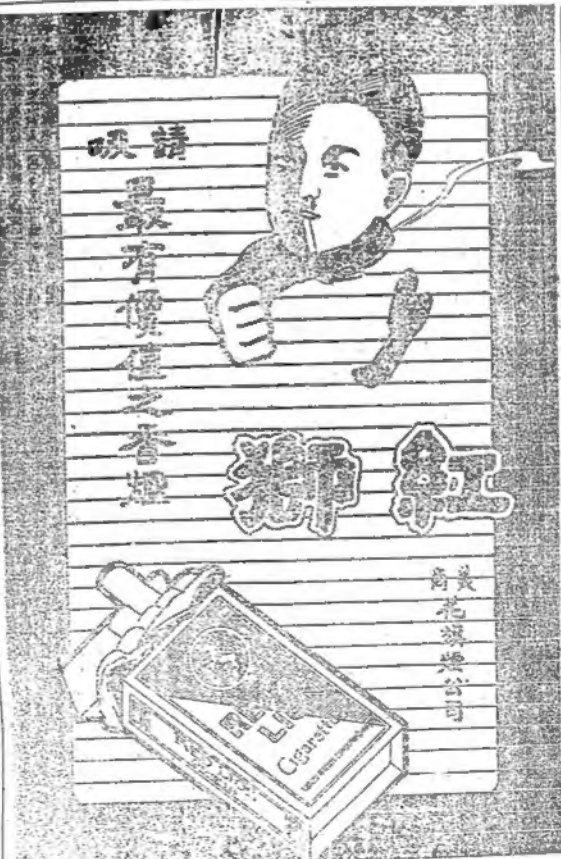 請吸
最有價值之香煙
紅獅
美商花旗煙公司
Cigarette